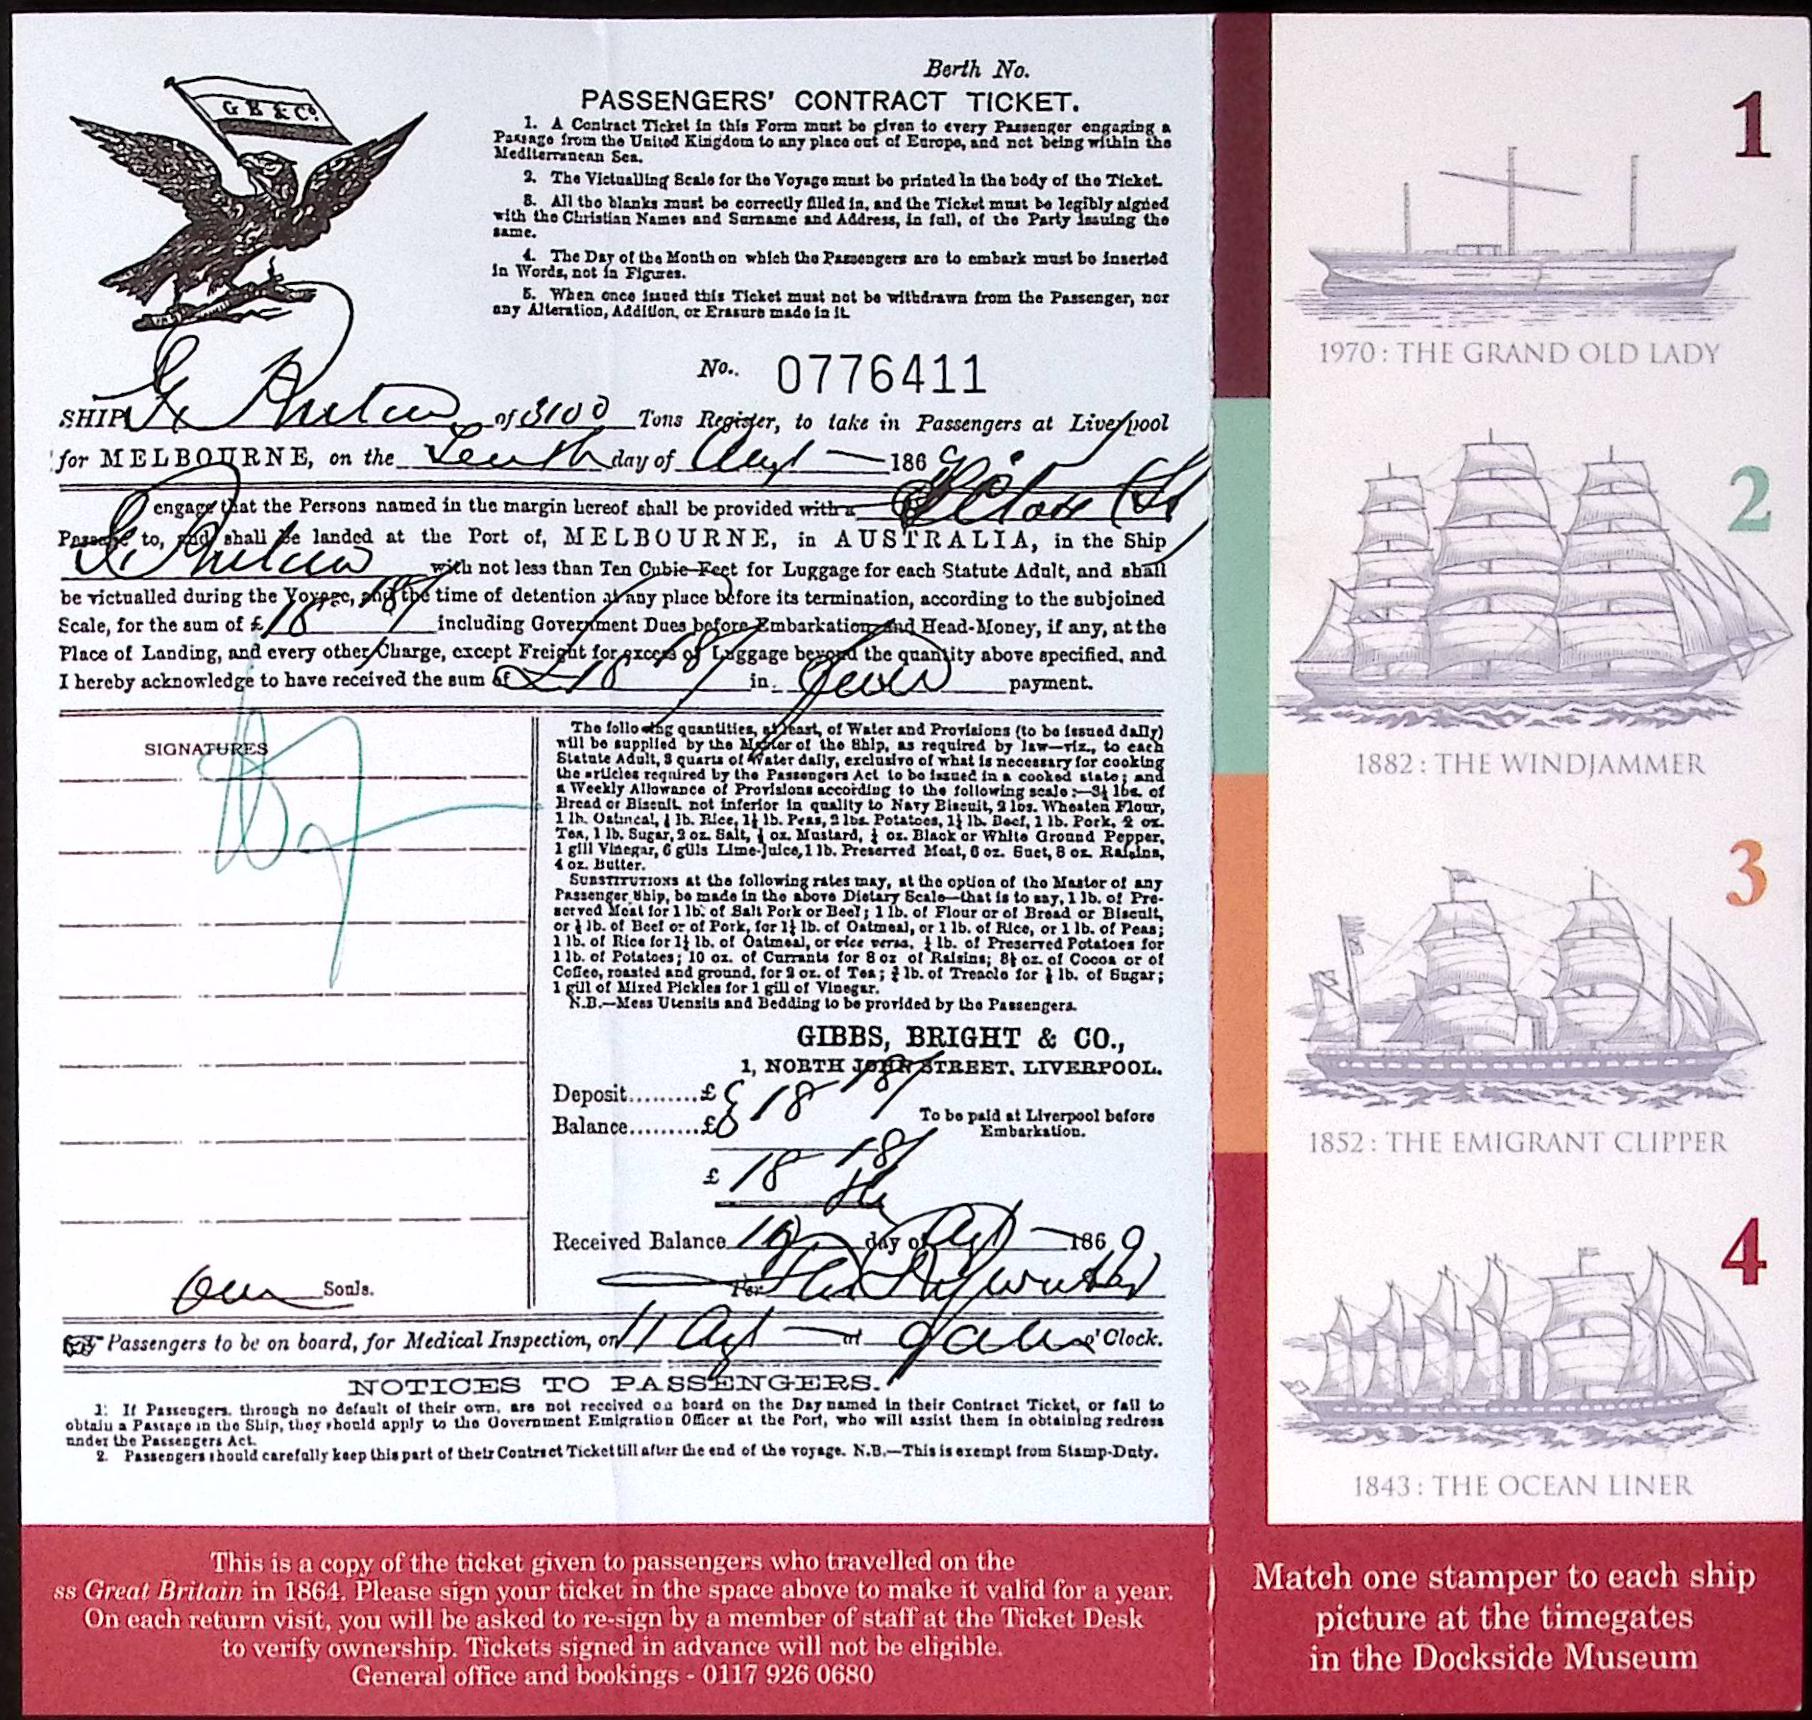 G B & Co.
Berth No.
PASSENGERS' CONTRACT TICKET.
1. A Contract Ticket in this Form must be given to every Passenger engaging a
Passage from the United Kingdom to any place out of Europe, and not being within the
Mediterranean Sea.
2. The Victualling Scale for the Voyage must be printed in the body of the Ticket.
3. All the blanks must be correctly filled in, and the Ticket must be legibly signed
with the Christian Names and Surname and Address, in full, of the Party issuing the
same.
4. The Day of the Month on which the Passengers are to embark must be inserted
in Words, not in Figures.
5. When once issued this Ticket must not be withdrawn from the Passenger, nor
any Alteration, Addition, or Erasure made in it.
No. 0776411
SHIP Gt Britain of 3100 Tons Register, to take in Passengers at Liverpool
for MELBOURNE, on the Tenth day of Augt 186
engage that the Persons named in the margin hereof shall be provided with a
Passage to, and shall be landed at the Port of, MELBOURNE, in AUSTRALIA, in the Ship
Gt Britain with not less than Ten Cubic Feet for Luggage for each Statute Adult, and shall
be victualled during the Voyage, and the time of detention at any place before its termination, according to the subjoined
Scale, for the sum of £18 18/ including Government Dues before Embarkation and Head-Money, if any, at the
Place of Landing, and every other Charge, except Freight for excess of Luggage beyond the quantity above specified, and
I hereby acknowledge to have received the sum of £18 18/ in payment.
SIGNATURES
The following quantities, at least, of Water and Provisions (to be issued daily)
will be supplied by the Master of the Ship, as required by law—viz., to each
Statute Adult, 3 quarts of Water daily, exclusive of what is necessary for cooking
the articles required by the Passengers Act to be issued in a cooked state; and
a Weekly Allowance of Provisions according to the following scale:—3½ lbs. of
Bread or Biscuit, not inferior in quality to Navy Biscuit, 2 lbs. Wheaten Flour,
1 lb. Oatmeal, ½ lb. Rice, 1½ lb. Peas, 2 lbs. Potatoes, 1¼ lb. Beef, 1 lb. Pork, 2 oz.
Tea, 1 lb. Sugar, 2 oz. Salt, ½ oz. Mustard, ¼ oz. Black or White Ground Pepper,
1 gill Vinegar, 6 gills Lime-Juice, 1 lb. Preserved Meat, 6 oz. Suet, 8 oz. Raisins,
4 oz. Butter.
SUBSTITUTIONS at the following rates may, at the option of the Master of any
Passenger Ship, be made in the above Dietary Scale—that is to say, 1 lb. of Pre-
served Meat for 1 lb. of Salt Pork or Beef; 1 lb. of Flour or of Bread or Biscuit,
or ½ lb. of Beef or of Pork, for 1¼ lb. of Oatmeal, or 1 lb. of Rice, or 1 lb. of Peas;
1 lb. of Rice for 1¼ lb. of Oatmeal, or vice versa, ¼ lb. of Preserved Potatoes for
1 lb. of Potatoes; 10 oz. of Currants for 8 oz of Raisins; 3½ oz. of Cocoa or of
Coffee, roasted and ground, for 2 oz. of Tea; ¾ lb. of Treacle for ½ lb. of Sugar;
1 gill of Mixed Pickles for 1 gill of Vinegar.
N.B.—Mess Utensils and Bedding to be provided by the Passengers.
GIBBS, BRIGHT & CO.,
1, NORTH JOHN STREET, LIVERPOOL.
Deposit.........£ 18 18/
Balance.........£
To be paid at Liverpool before
Embarkation.
£ 18 18/
Received Balance 10 day of Augt 1869
Per
One Souls.
Passengers to be on board, for Medical Inspection, on 11 Augt at 9 am o'Clock.
NOTICES TO PASSENGERS.
1. If Passengers, through no default of their own, are not received on board on the Day named in their Contract Ticket, or fail to
obtain a Passage in the Ship, they should apply to the Government Emigration Officer at the Port, who will assist them in obtaining redress
under the Passengers Act.
2. Passengers should carefully keep this part of their Contract Ticket till after the end of the voyage. N.B.—This is exempt from Stamp-Duty.
This is a copy of the ticket given to passengers who travelled on the
ss Great Britain in 1864. Please sign your ticket in the space above to make it valid for a year.
On each return visit, you will be asked to re-sign by a member of staff at the Ticket Desk
to verify ownership. Tickets signed in advance will not be eligible.
General office and bookings - 0117 926 0680
1
1970 : THE GRAND OLD LADY
2
1882 : THE WINDJAMMER
3
1852 : THE EMIGRANT CLIPPER
4
1843 : THE OCEAN LINER
Match one stamper to each ship
picture at the timegates
in the Dockside Museum